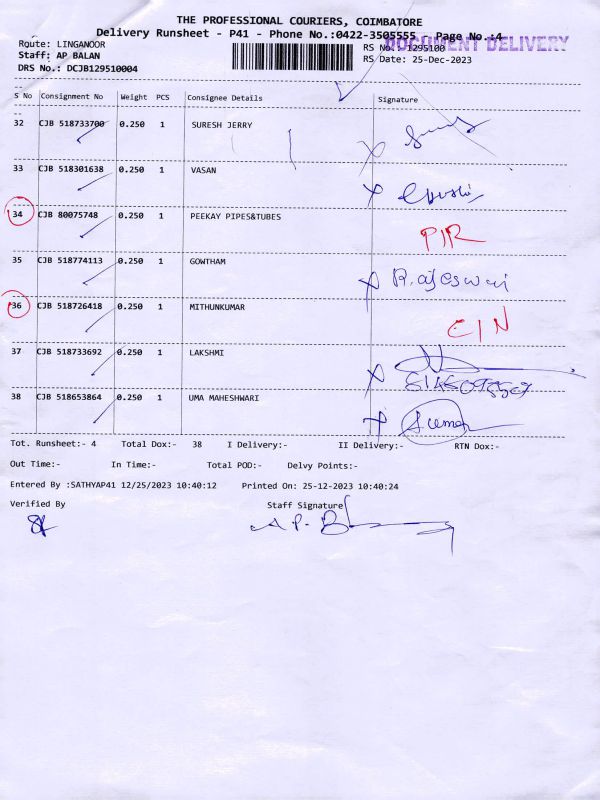 THE PROFESSIONAL COURIERS, COIMBATORE
Delivery Runsheet - P41 - Phone No.:0422-3505555 - Page No.:4
DOCUMENT DELIVERY
Route: LINGANOOR RS No.: 1295100
Staff: AP BALAN RS Date: 25-Dec-2023
DRS No.: DCJB129510004
S No Consignment No Weight PCS Consignee Details Signature
32 CJB 518733700 0.250 1 SURESH JERRY
33 CJB 518301638 0.250 1 VASAN
34 CJB 80075748 0.250 1 PEEKAY PIPES&TUBES P/R
35 CJB 518774113 0.250 1 GOWTHAM Rajeswari
36 CJB 518726418 0.250 1 MITHUNKUMAR C/N
37 CJB 518733692 0.250 1 LAKSHMI
38 CJB 518653864 0.250 1 UMA MAHESHWARI
Tot. Runsheet:- 4 Total Dox:- 38 I Delivery:- II Delivery:- RTN Dox:-
Out Time:- In Time:- Total POD:- Delvy Points:-
Entered By :SATHYAP41 12/25/2023 10:40:12 Printed On: 25-12-2023 10:40:24
Verified By Staff Signature
A P. B